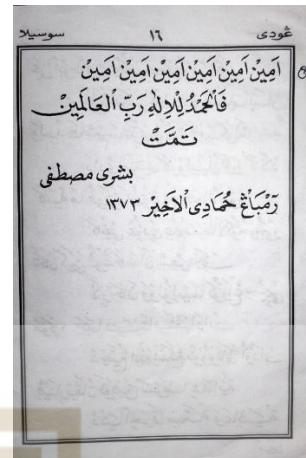 ڠودي ١٦ سوسيلا
اٰمِيْن اٰمِيْن اٰمِيْن اٰمِيْن اٰمِيْن اٰمِيْن
فَالْحَمْدُ لِلّٰهِ رَبِّ الْعَالَمِيْنَ
تَمَّتْ
بشرى مصطفى
رَمْبَاڠْ جُمَادِى الْاَخِيْر ١٣٧٣